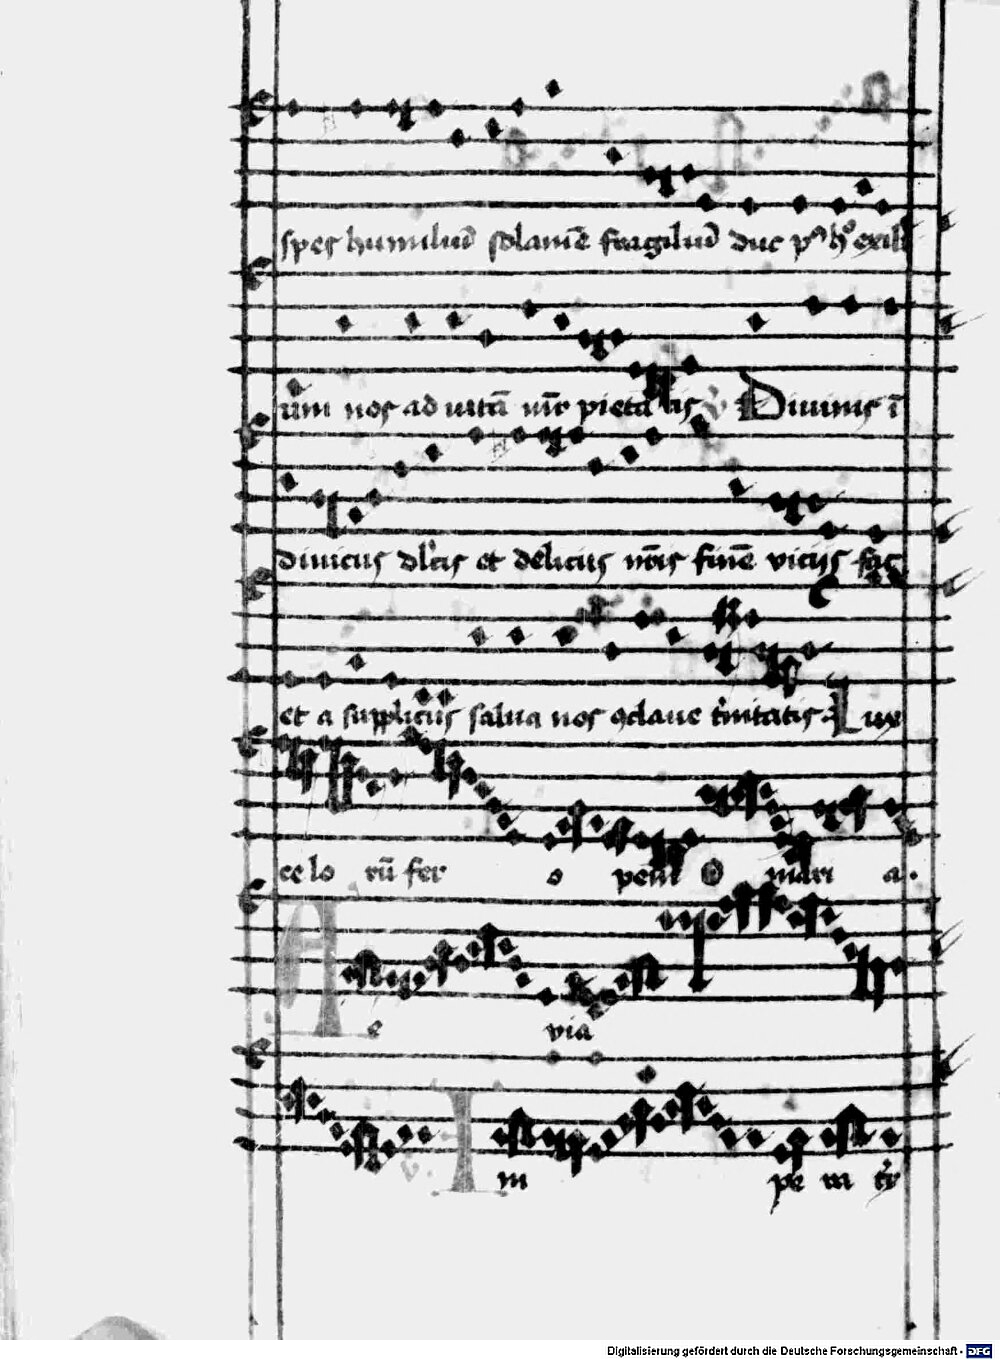 spes humiliū solamē fragiliū duc pꝰ hͦ exili
um nos ad uitā nr̄e pietatis Diuinis ī
diuicus dl̓cis et deliciis nōis finē viciis fac
et a suppliciis salua nos ꝯclaue t̓nitatis Lux
celo rū fer o pem O mari a.
A e via
In pe ra
Digitalisierung gefördert durch die Deutsche Forschungsgemeinschaft - DFG